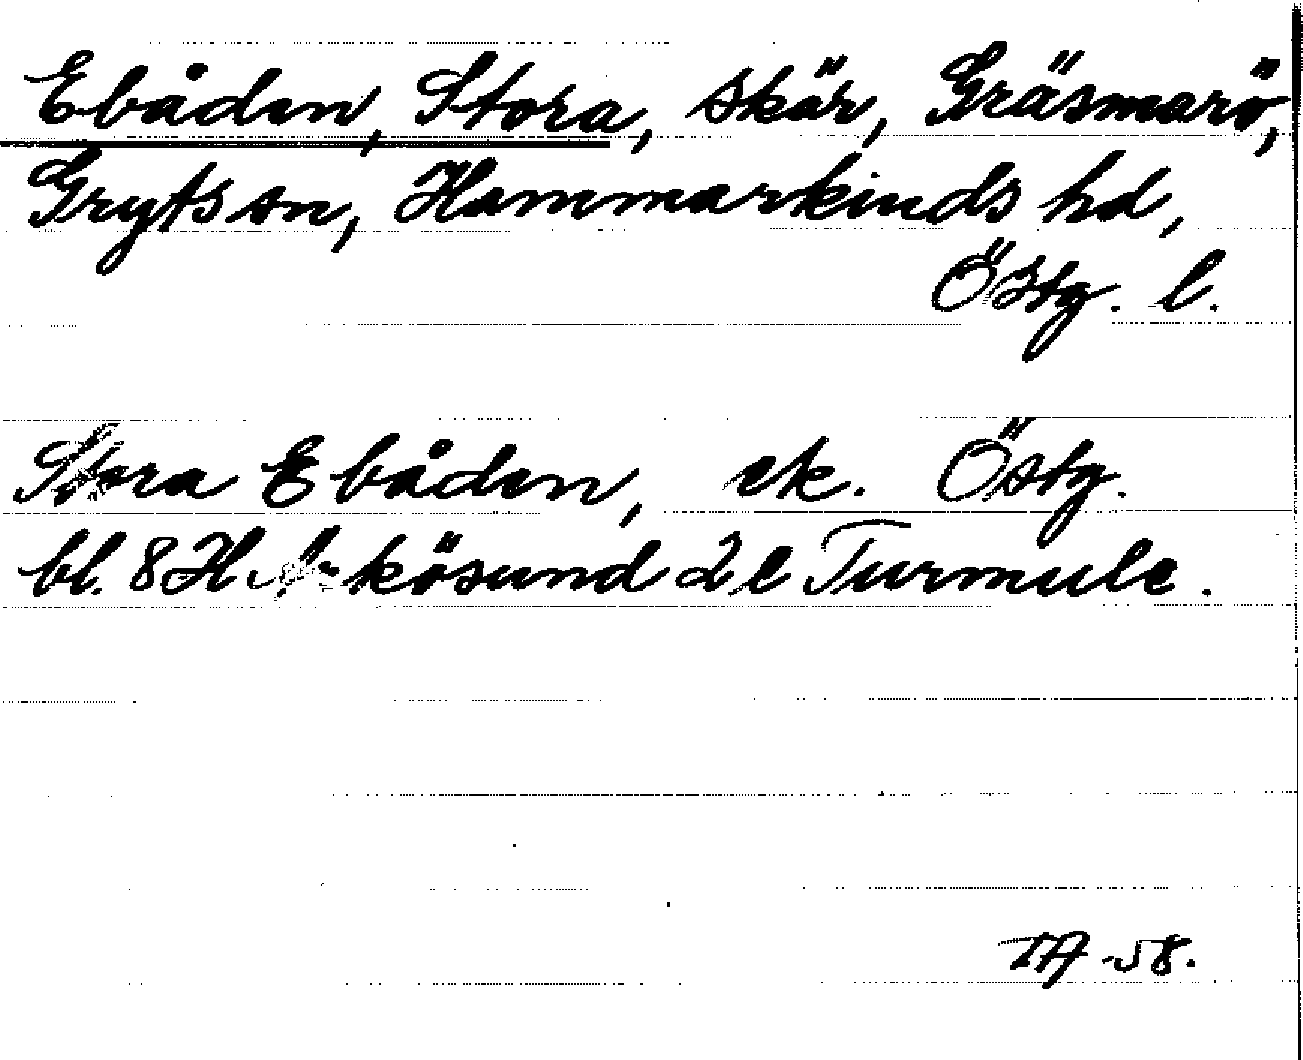 Ebåden, Stora, skär, Gräsmarö,
Gryts sn, Hammarkinds hd,
Östg. l.
Stora Ebåden, ek. Östg.
bl. 8H Arkösund 2e Turmule.
TA -58.